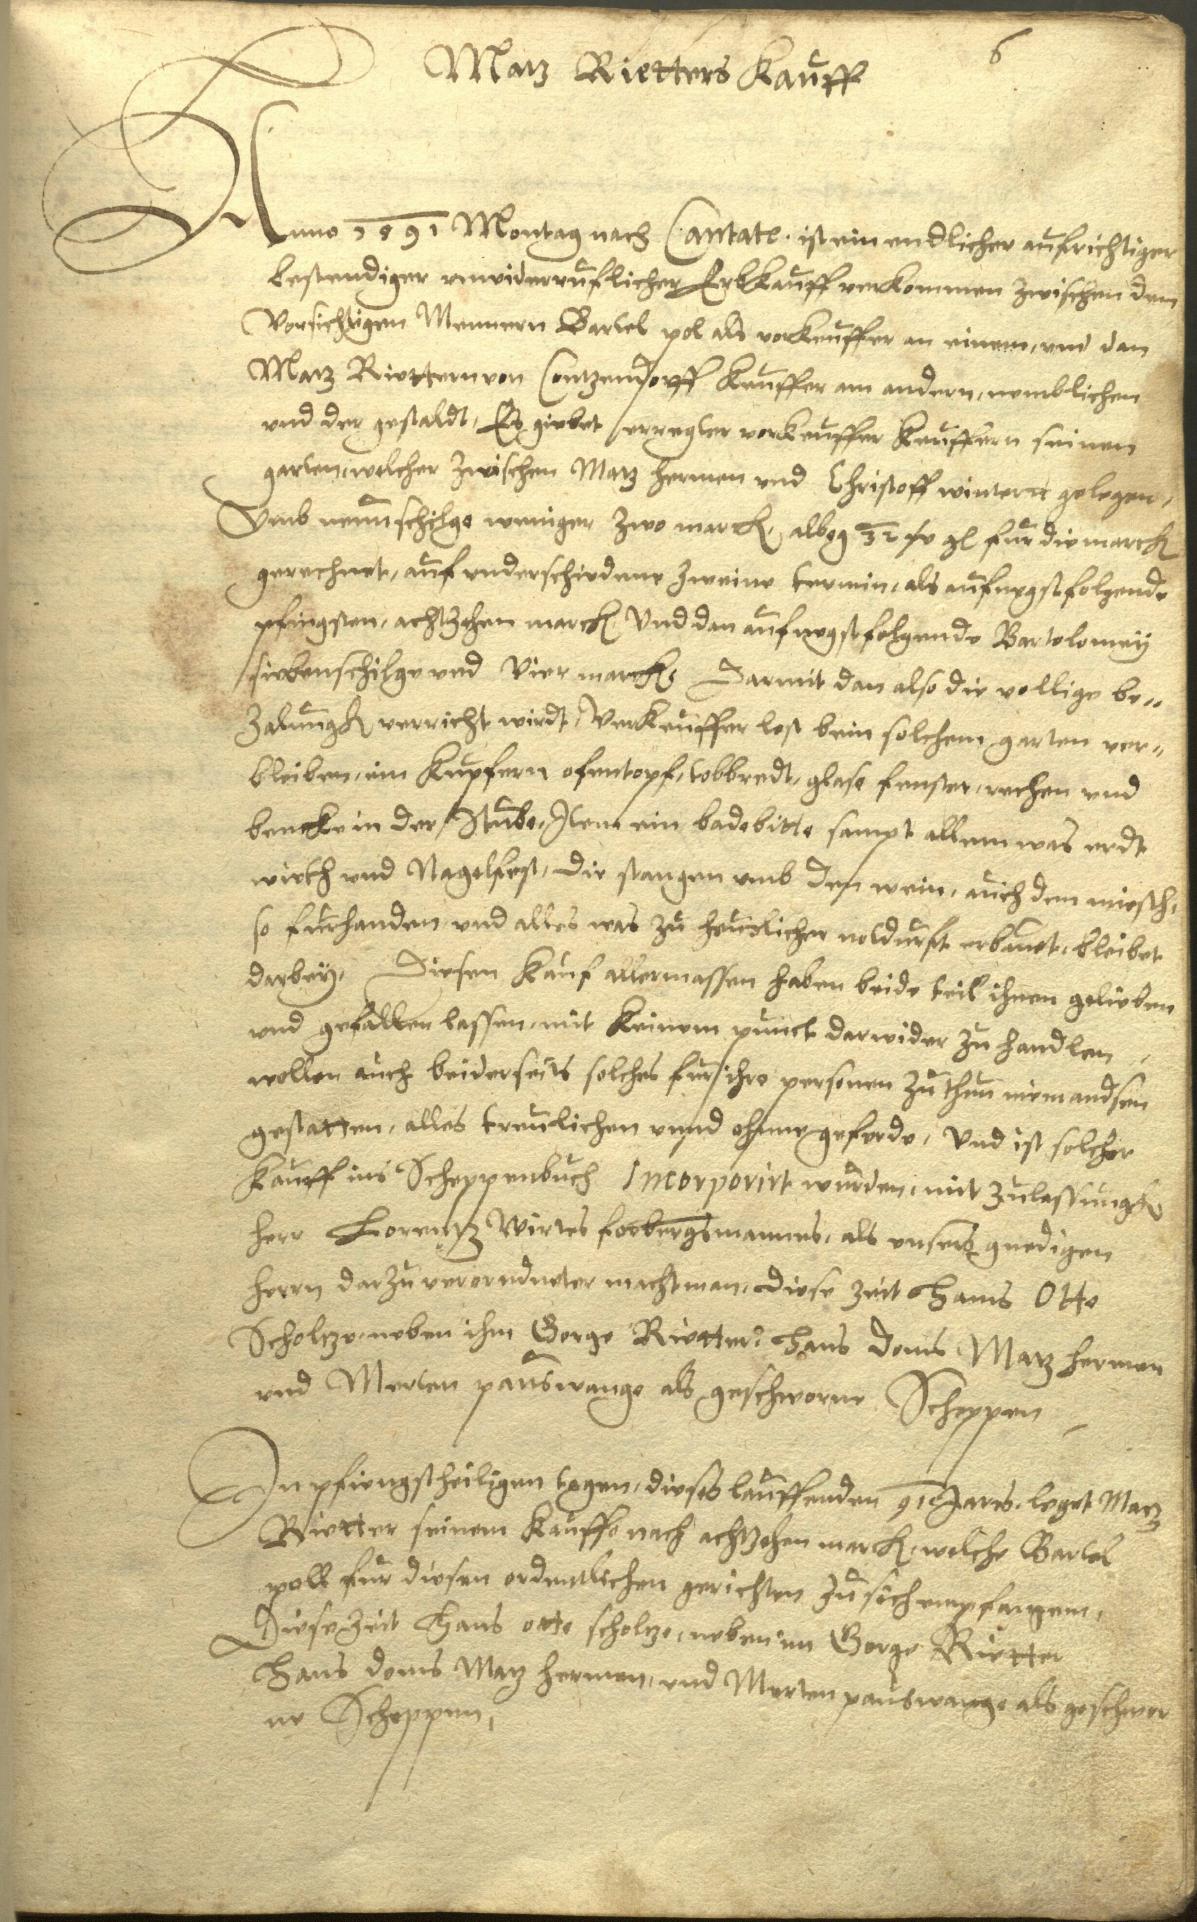 6
Matz Rietters Kauff
Anno 1591 Montag nach Cantate. ist ein endlicher aufrichtiger
bestendiger unwiderruflicher Erbkauff verkommen zwischen den
Vorsichtigen Mennern Bartel pol als vorkeuffer an einem, und dan
Matz Riettern von Contzendorff Keuffer am andern, nemblichen
und der gestaldt, Es giebet erregter vorkeuffer Keuffern seinen
garten, welcher zwischen Matz hermen und Christoff wintern gelegen,
Umb neunschilge weniger zwo marck, alweg 32 gl fur die marck
gerechnet, auf underschiedene zweine termin, als auf negstfolgende
pfingsten, achtzehen marck Und dan auf negstfolgende Bartolomey
siebenschilge und Vier marck, Darmit dan also die vollige be-
zalungk verricht wirdt, Verkeuffer lest bein solchem garten ver-
bleiben, ein Kupfern ofentopf, tobbredt, glase fenster, rechen und
bencke in der Stube, Item ein badebitte sampt allem was erdt
wirth und Nagelfest, die stangen umb den wein, auch den
so furhanden und alles was zu heuslicher noldurft erbauet, bleibet
darbey. Diesen Kauf allermassen haben beide teil ihnen gelieben
und gefallen lassen, mit keinem punct darwider zu handlen,
wollen auch beiderseits solches fur ihre personen zu thun niemandsen
gestatten, alles treulichen unnd ohnne geferde, Und ist solcher
Kauff ins Scheppenbuch Incorporirt wurden, mit zulassungk
herr Lorentz Wirtes forbergsmannes, als unsers gnedigen
herrn darzu verordneter machtman, diese zeit Hans Otte
Scholtze, neben ihm George Rietter, Hans doms Matz hermen
und Merten pauswange als geschworne Scheppen
In pfiengstheiligen tagen, dieses lauffenden 91 Jares, leget Matz
Rietter seinem Kauffe nach achtzehen marck, welche Bartel
poll fur diesen ordentlichen gerichten zu sich empfangen,
Diese Zeit Hans otte scholtze, neben im George Rietter
Hans doms Matz hermen, und Merten pauswange als geschwor
ne Scheppen,